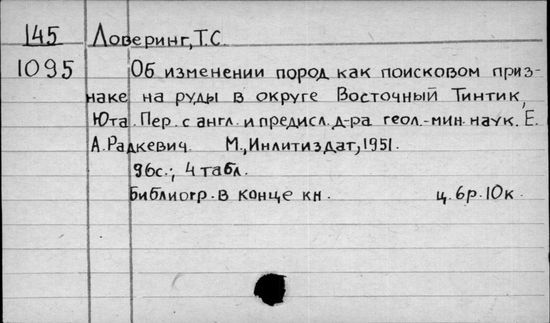 145 Ловеринг, Т.С.
1095 Об изменении пород как поисковом приз-
наке на руды в округе Восточный Тинтик,
Юта. Пер. с англ. и предисл. д-ра геол.-мин. наук. Е.
А. Радкевич. М., Инлитиздат, 1951.
96с.; 4 табл.
Библиогр. в конце кн. ц. 6р. 10к.